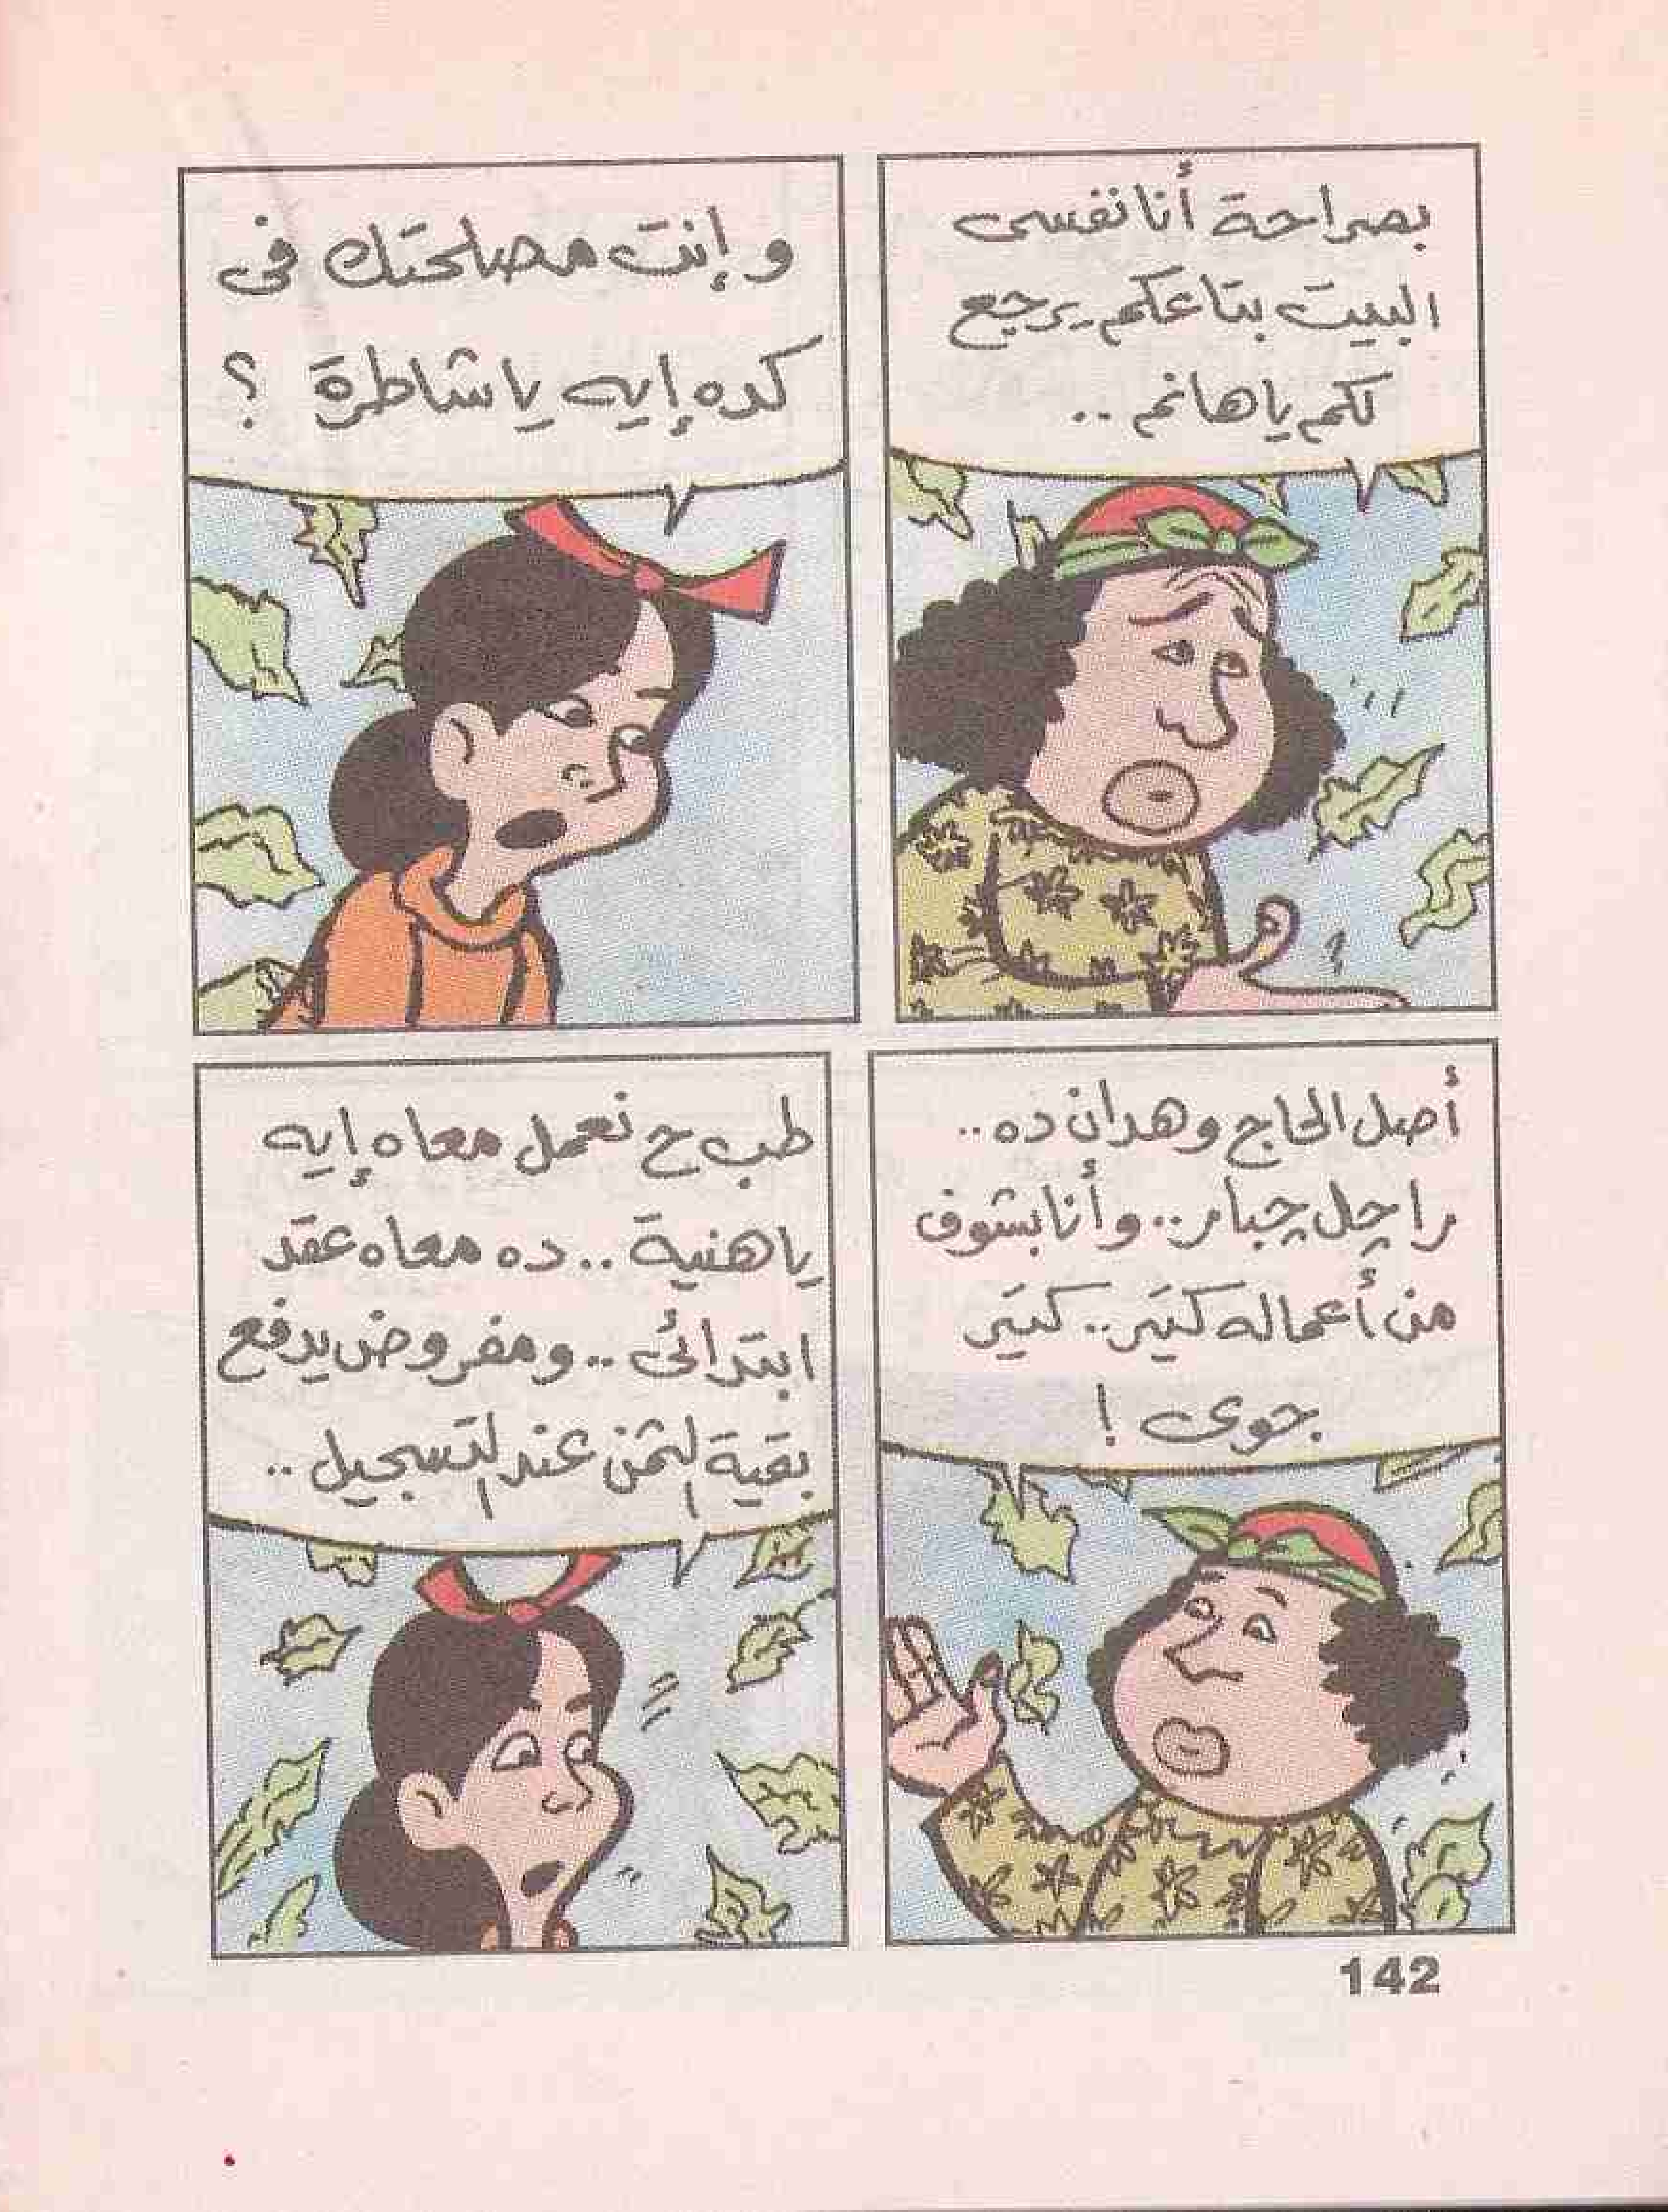 بصراحة أنا نفسى
البيت بتاعكم يرجع
لكم يا هانم ..
وإنت مصلحتك فى
كده إيه يا شاطرة ؟
أصل الحاج وهدان ده ..
راجل جبار .. وأنا بشوف
من أعماله كتير .. كتير
جوى !
طب ح نعمل معاه إيه
يا هنية .. ده معاه عقد
ابتدائى .. ومفروض يدفع
بقية الثمن عند التسجيل ..
142